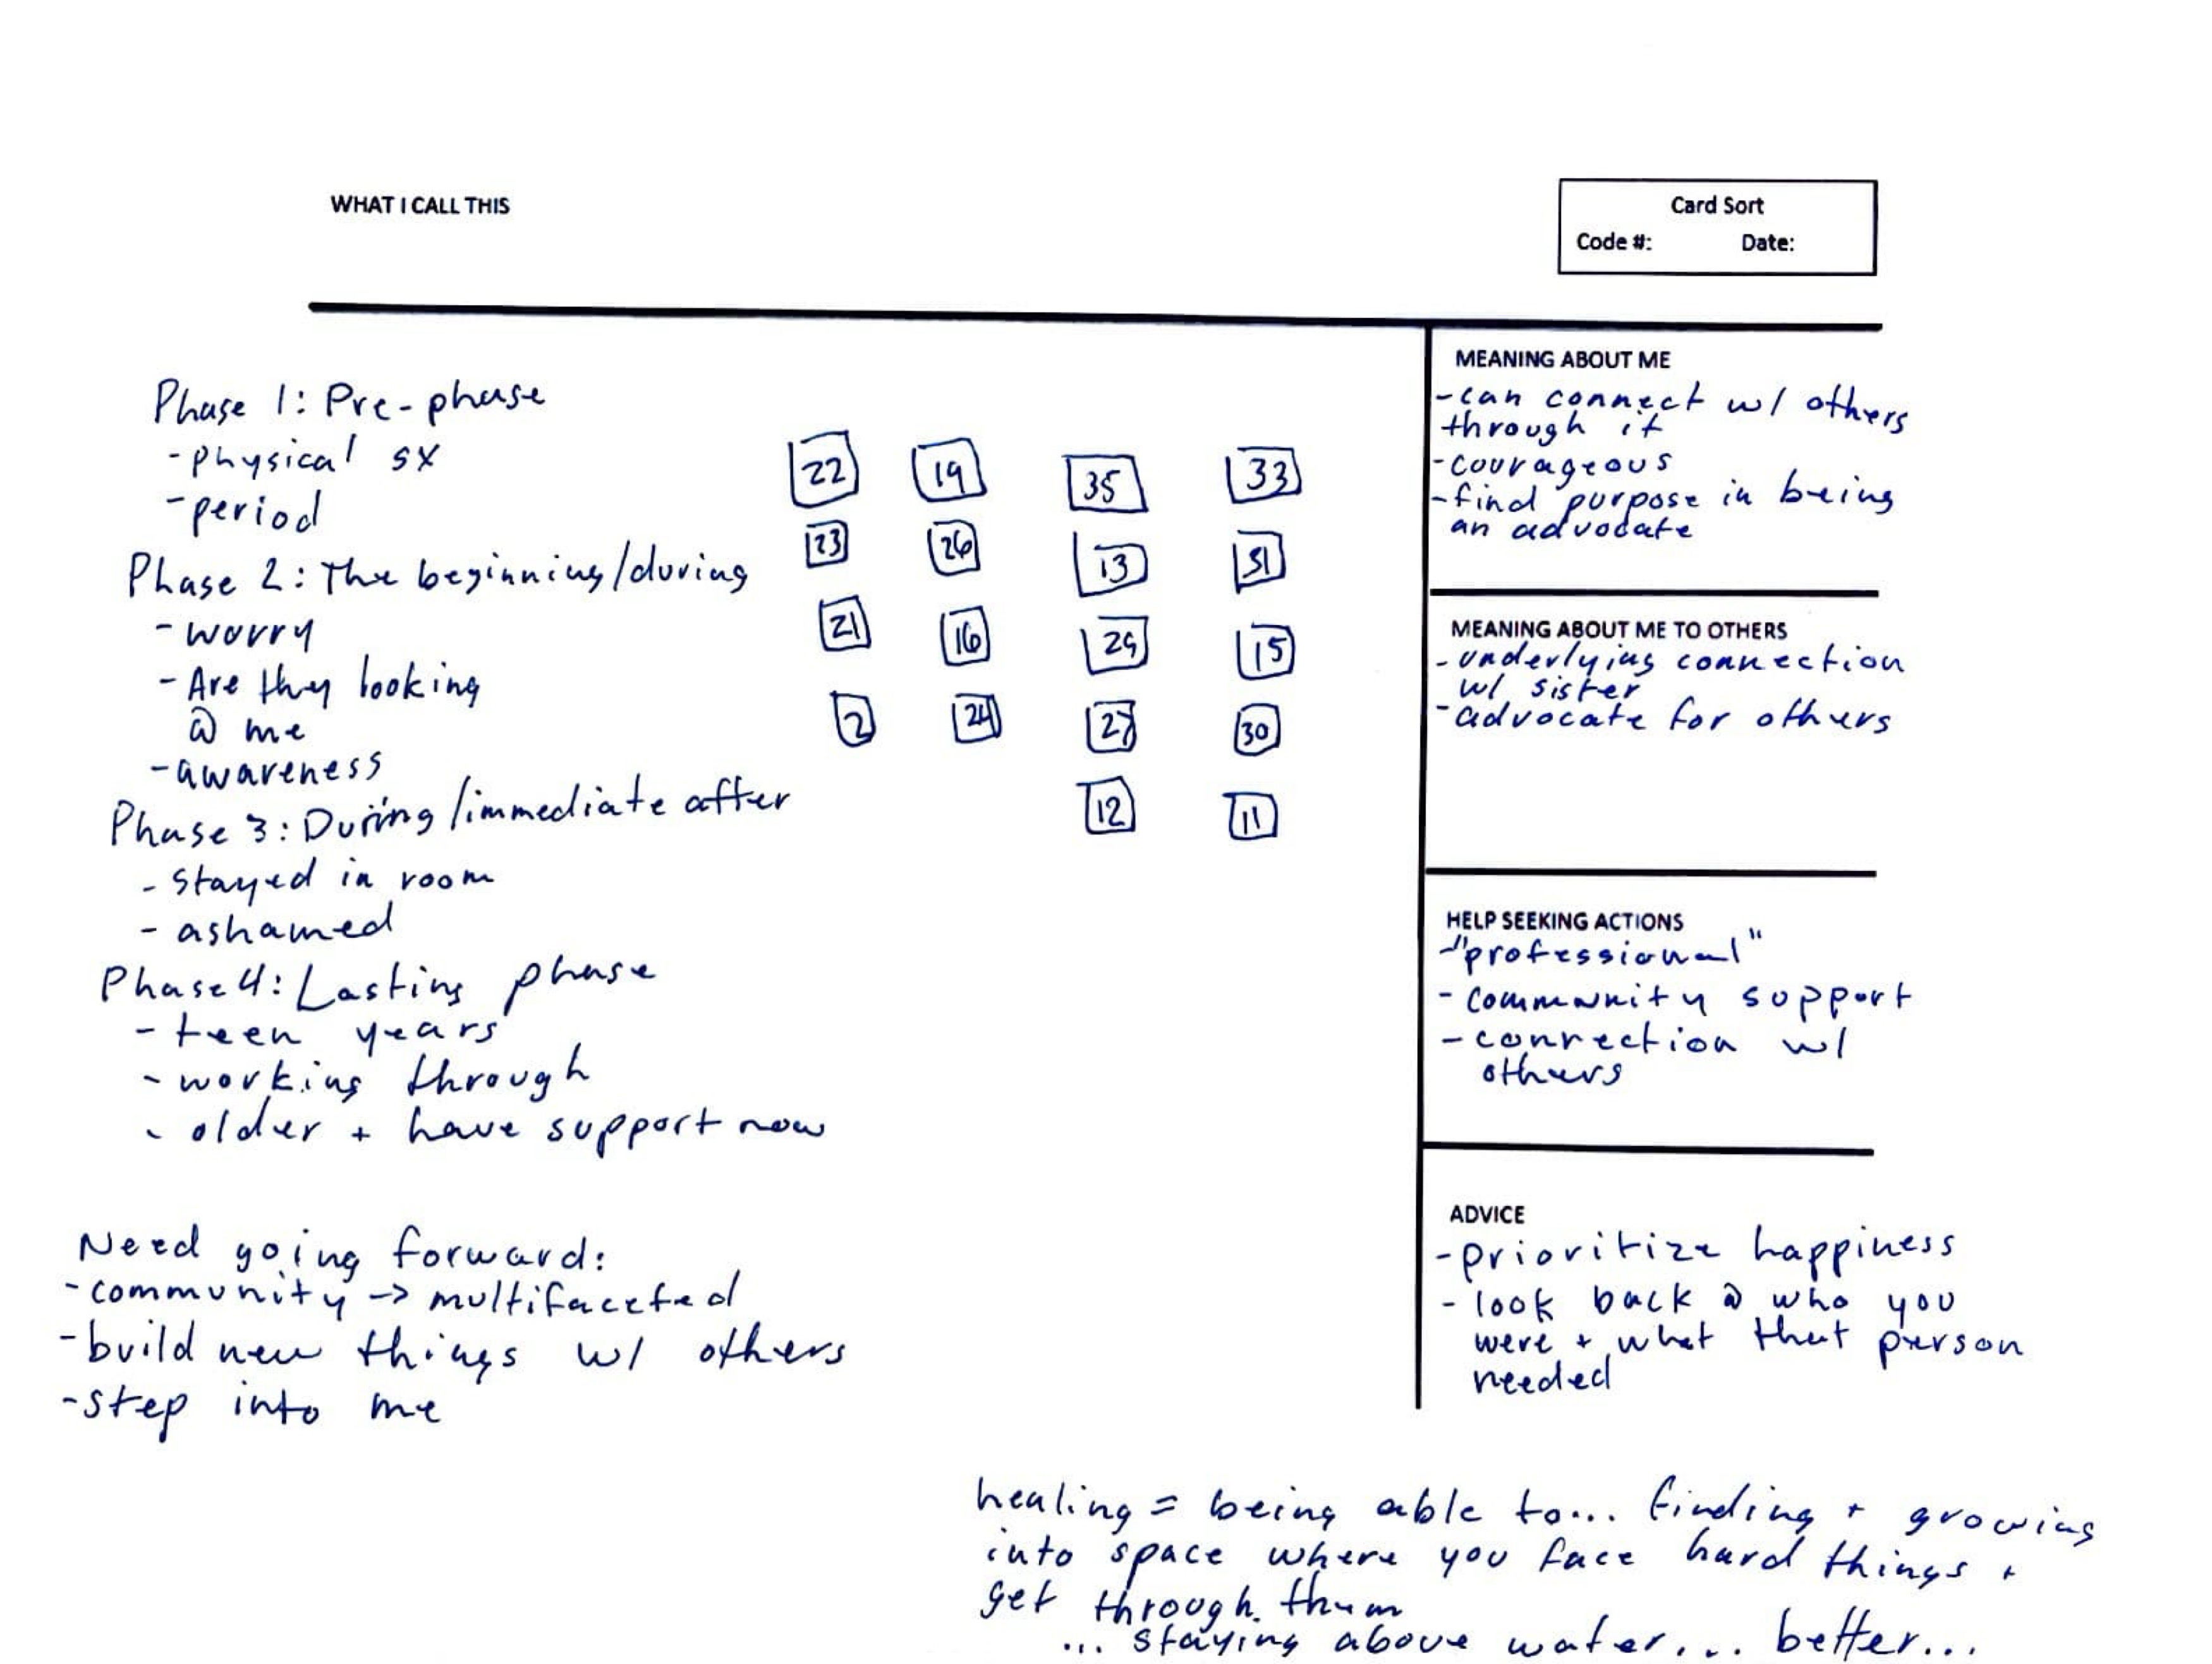 WHAT I CALL THIS
Card Sort
Code #: Date:
Phase 1: Pre-phase
- physical sx
- period
Phase 2: The beginning/during
- worry
- Are they looking
@ me
- awareness
Phase 3: During /immediate after
- stayed in room
- ashamed
Phase 4: Lasting phase
- teen years
- working through
- older + have support now
Need going forward:
- community -> multifaceted
- build new things w/ others
- step into me
22 19 35 33
23 26 13 31
21 16 29 15
2 24 27 30
12 11
MEANING ABOUT ME
- can connect w/ others
through it
- courageous
- find purpose in being
an advocate
MEANING ABOUT ME TO OTHERS
- underlying connection
w/ sister
- advocate for others
HELP SEEKING ACTIONS
- "professional"
- community support
- connection w/
others
ADVICE
- prioritize happiness
- look back @ who you
were + what that person
needed
healing = being able to... finding + growing
into space where you face hard things +
get through them
... staying above water... better...